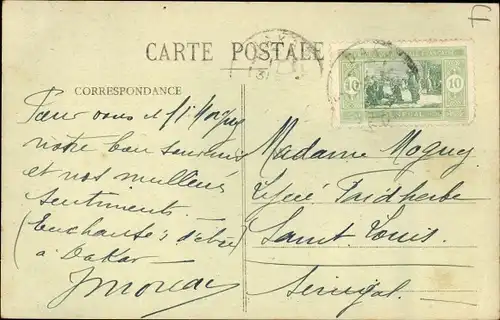 CARTE POSTALE
CORRESPONDANCE
Pour vous et Mr Moguey
notre bon souvenir
et nos meilleurs
sentiments.
(Enchantés d'être
à Dakar
10 10
Madame Moguey
Lycée Faidherbe
Saint Louis.
Sénégal.